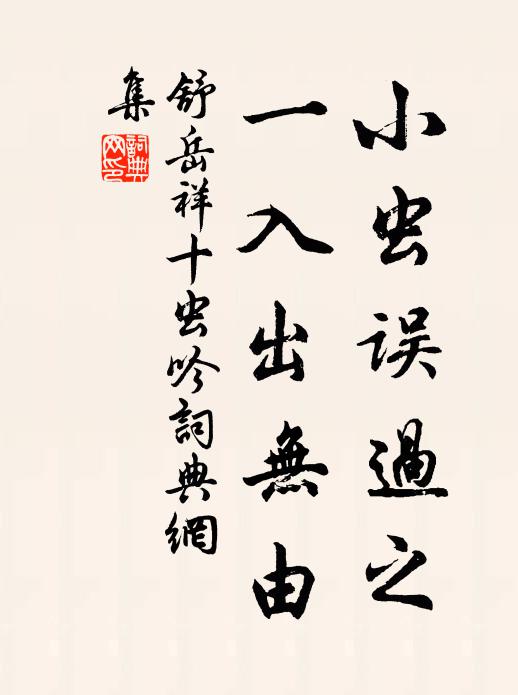 小虫误過之
一入出無由
舒岳祥十虫吟詞典網
集
詞典网印